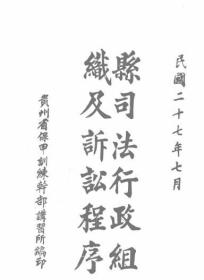 民國二十七年七月
縣司法行政組
織及訴訟程序
貴州省保甲訓練幹部講習所編印